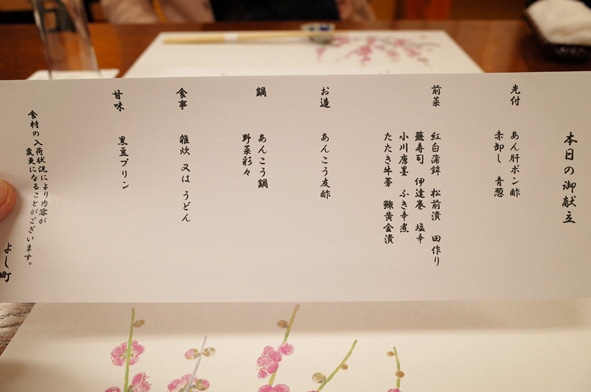 本日の御献立
先付
あん肝ポン酢
赤卸し 青葱
前菜
紅白蒲鉾 松前漬 田作り
蕪寿司 伊達巻 塩辛
小川唐墨 ふき辛煮
たたき牛蒡 鰊黄金漬
お造
あんこう友酢
鍋
あんこう鍋
野菜彩々
食事
雑炊 又は うどん
甘味
黒豆プリン
食材の入荷状況により内容が
変更になることがございます。
よし町